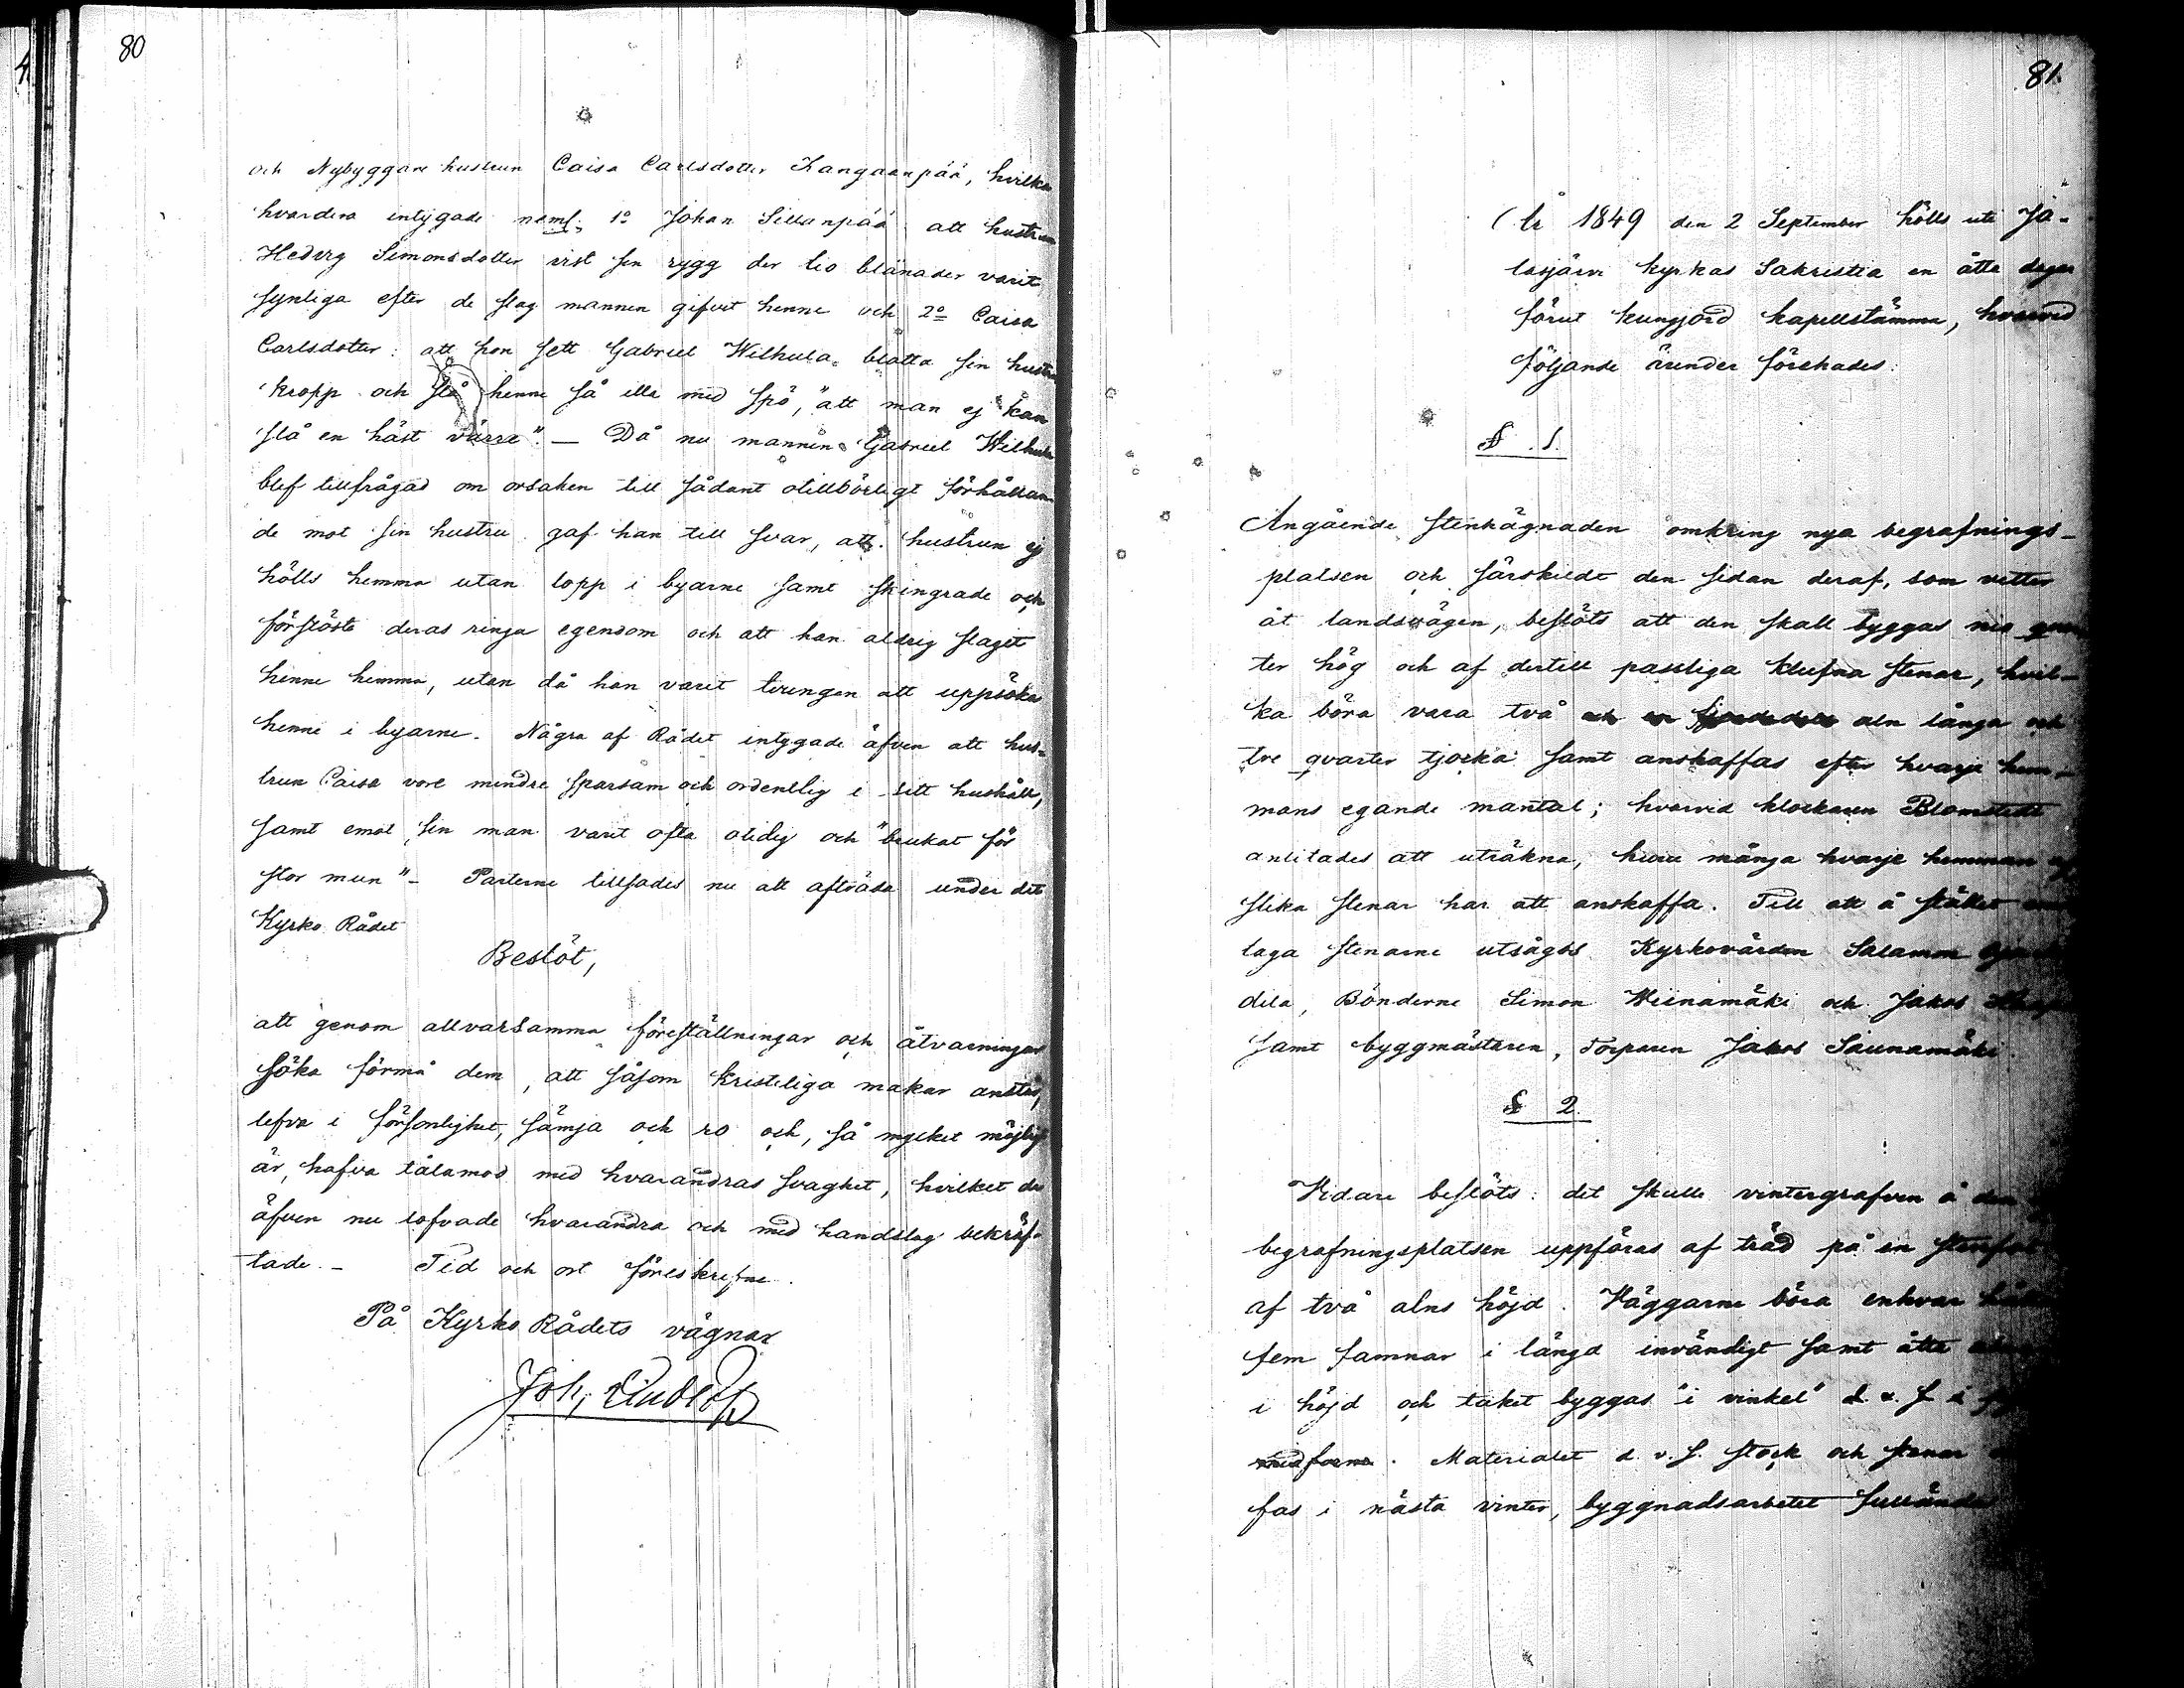 80
och Nybyggare hustrun Caisa Carlsdotter Kangaanpää, hvilka
hvardera intygade neml. 1o Johan Sillanpää att hustrun
Hedvig Simonsdotter vist sin rygg der tio blånader varit
synliga efter de slag mannen gifvit henne och 2o Caisa
Carlsdotter: att hon sett Gabriel Wilhula blotta sin hustrus
kropp och slå henne så illa med spö, "att man ej kan
slå en häst värre". — Då nu mannen Gabriel Wilhula
blef tillfrågad om orsaken till sådant otillbörligt förhållan
de mot sin hustru gaf han till svar, att hustrun ej
hölls hemma utan lopp i byarne samt skingrade och
förslöste deras ringa egendom och att han aldrig slagit
henne hemma, utan då han varit tvungen att uppsöka
henne i byarne. Några af Rådet intygade äfven att hus-
trun Caisa vore mindre sparsam och ordentlig i sitt hushåll,
samt emot sin man varit ofta otidig och "brukat för
stor mun" – Parterne tillsades nu att afträda under det
Kyrko Rådet
Beslöt,
att genom allvarsamma föreställningar och åtvarningar
söka förmå dem, att såsom kristeliga makar anstår,
lefva i försonlighet, sämja och ro och, så mycket möjligt
är, hafva tålamod med hvarandras svaghet, hvilket de
äfven nu lofvade hvarandra och med handslag bekräf-
tade. – Tid och ort föreskrifne.
På Kyrko Rådets vägnar
Joh,
81.
År 1849 den 2 September hölls uti Ja-
lasjärvi kyrkas Sakristia en åtta dagar
förut kungjord kapellstämma, hvarvid
följande ärender förehades:
§ .1.
Angående stenhägnaden omkring nya begrafnings-
platsen och särskildt den sidan deraf, som vetter
åt landsvägen, beslöts att den skall byggas nio qvar
ter hög och af dertill passliga klufna stenar, hvil-
ka böra vara två och en fjerdedels aln långa och
tre qvarter tjocka samt anskaffas efter hvarje hem-
mans egande mantal; hvarvid klockaren Blomstedt
anlitades att uträkna, huru många hvarje hemman
slika stenar har att anskaffa. Till att å stället
taga stenarne utsågos Kyrkovärden Salamon
dila, Bönderne Simon Wiinamäki och Jakob
samt byggmästaren, Torparen Jakob Saunamäki.
§ 2.
Vidare beslöts: det skulle vintergrafven å den
begrafningsplatsen uppföras af träd på en
af två alns höjd. Väggarne böra enhvar
fem famnar i längd invändigt samt åtta
i höjd och taket byggas "i vinkel" d. v. s.
. Materialet d. v. s. stock och stenar
fas i nästa vinter, byggnadsarbetet